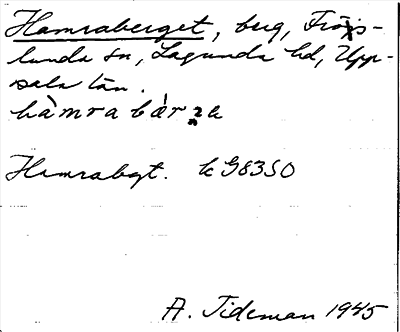 Hamraberget, berg, Fröjs-
lunda sn, Lagunda hd, Upp-
sala län.
hàmra bàrꭓe
Hamrabgt. k G83SO
A. Tideman 1945